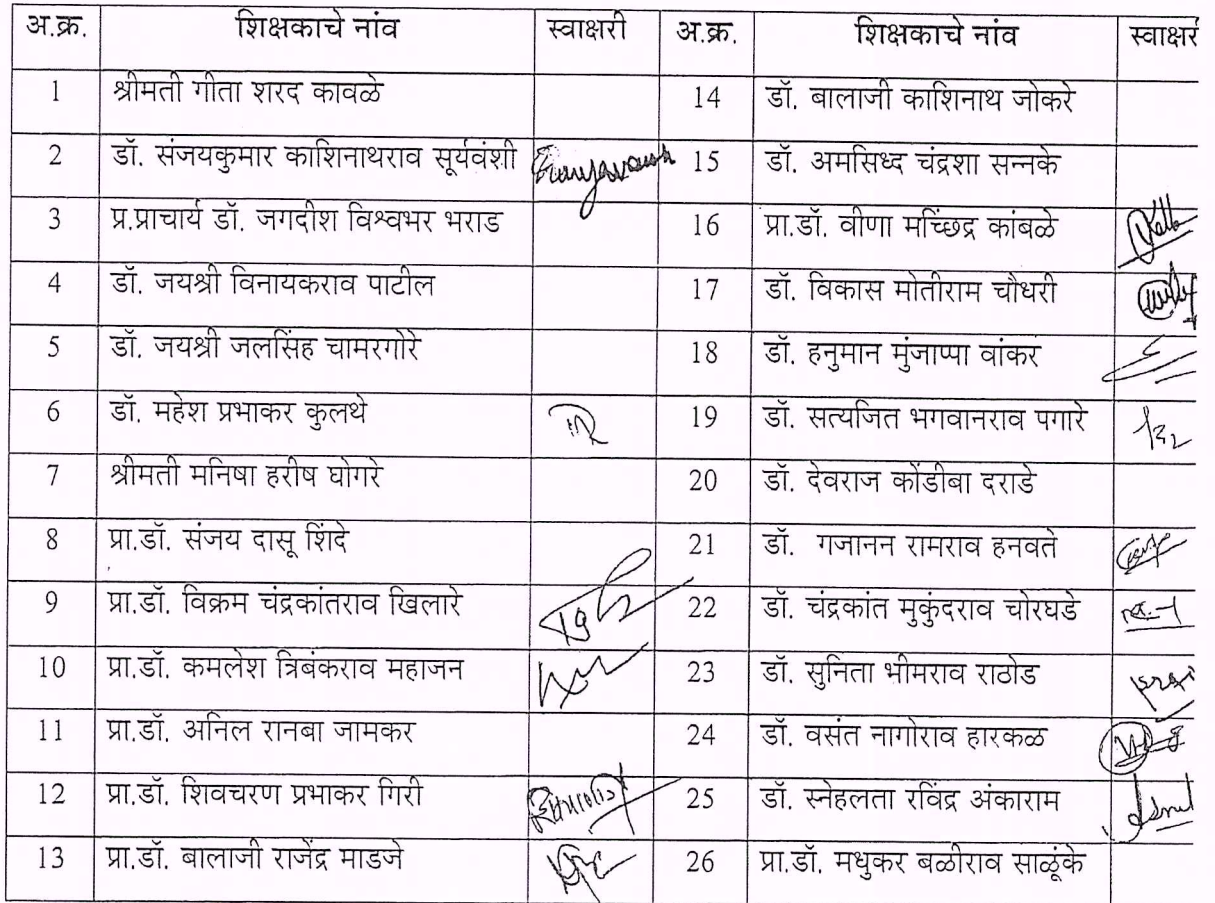 अ.क्र. शिक्षकाचे नांव स्वाक्षरी अ.क्र. शिक्षकाचे नांव स्वाक्षरी
1 श्रीमती गीता शरद कावळे 14 डॉ. बालाजी काशिनाथ जोकरे
2 डॉ. संजयकुमार काशिनाथराव सूर्यवंशी 15 डॉ. अमसिध्द चंद्रशा सन्नके
3 प्र.प्राचार्य डॉ. जगदीश विश्वभर भराड 16 प्रा.डॉ. वीणा मच्छिंद्र कांबळे
4 डॉ. जयश्री विनायकराव पाटील 17 डॉ. विकास मोतीराम चौधरी
5 डॉ. जयश्री जलसिंह चामरगोरे 18 डॉ. हनुमान मुंजाप्पा वांकर
6 डॉ. महेश प्रभाकर कुलथे 19 डॉ. सत्यजित भगवानराव पगारे
7 श्रीमती मनिषा हरीष घोगरे 20 डॉ. देवराज कोंडीबा दराडे
8 प्रा.डॉ. संजय दासू शिंदे 21 डॉ. गजानन रामराव हनवते
9 प्रा.डॉ. विक्रम चंद्रकांतराव खिलारे 22 डॉ. चंद्रकांत मुकुंदराव चोरघडे
10 प्रा.डॉ. कमलेश त्रिबंकराव महाजन 23 डॉ. सुनिता भीमराव राठोड
11 प्रा.डॉ. अनिल रानबा जामकर 24 डॉ. वसंत नागोराव हारकळ
12 प्रा.डॉ. शिवचरण प्रभाकर गिरी 25 डॉ. स्नेहलता रविंद्र अंकाराम
13 प्रा.डॉ. बालाजी राजेंद्र माडजे 26 प्रा.डॉ. मधुकर बळीराव साळूंके